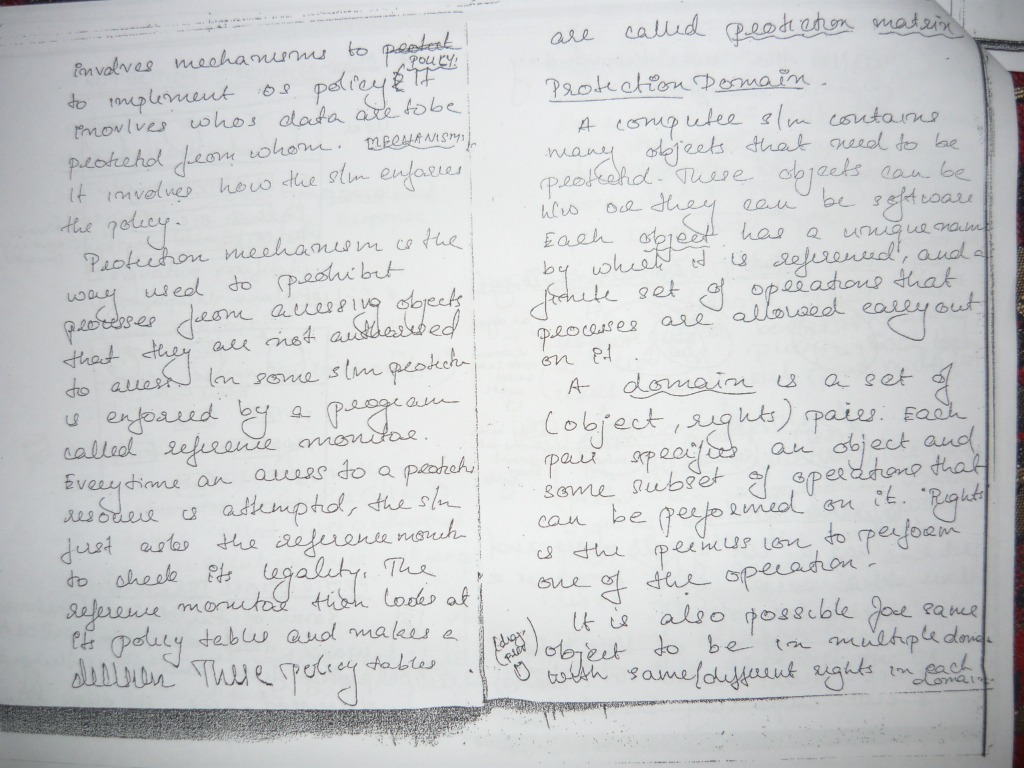 involves mechanisms to protect
POLICY:
to implement os policy & It
inovlves whos data are to be
protectd from whom. MECHANISM:
It involves how the s/m enforces
the policy.
Protection mechanism is the
way used to prohibit
processes from accessing objects
that they are not authorised
to access. In some s/m protectn
is enforced by a program
called reference monitor.
Everytime an access to a protectn
resource is attempted, the s/m
first asks the reference monitr
to check its legality. The
reference monitor then looks at
its policy tables and makes a
decision These policy tables
are called protection matrix
Protection Domain.
A computer s/m contains
many objects that need to be
protectd. These objects can be
h/w or they can be software
Each object has a unique name
by which it is referenced, and a
finite set of operations that
processes are allowed carry out
on it.
A domain is a set of
(object, rights) pairs. Each
pair specifies an object and
some subset of operations that
can be performed on it. "Rights
is the permission to perform
one of the operation.
It is also possible for same
object to be in multiple doma
with same/different rights in each
domain.